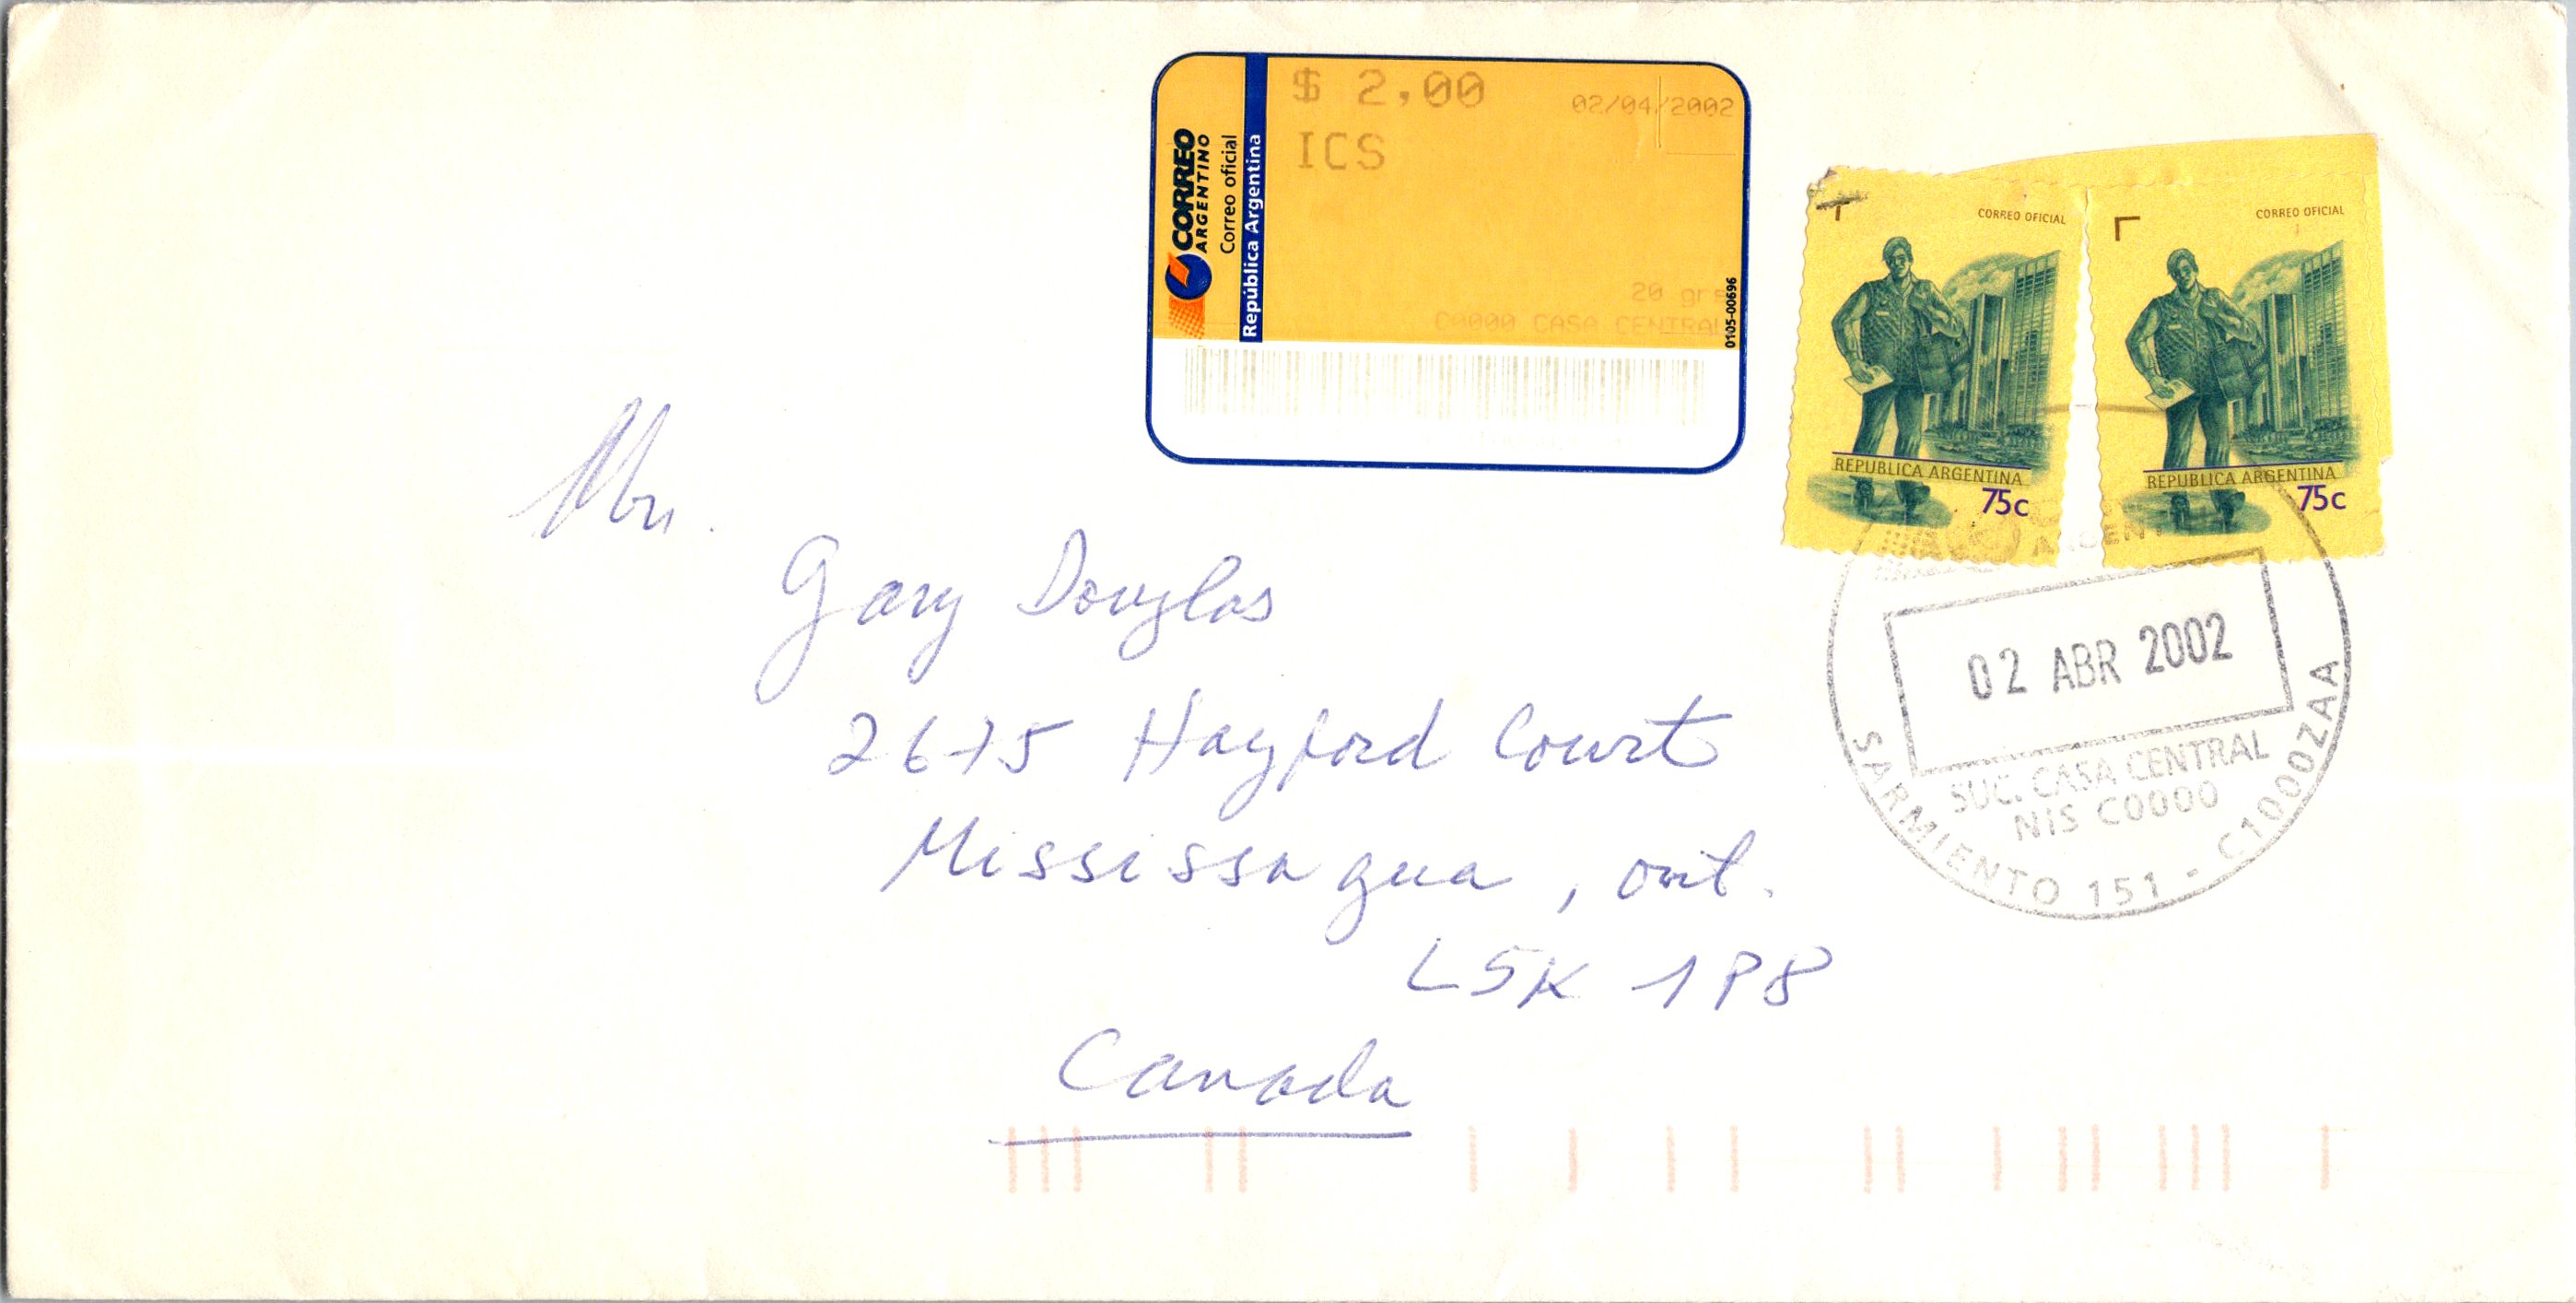 $ 2,00
02/04/2002
ICS
CORREO
ARGENTINO
Correo oficial
República Argentina
20 grs
C0000 CASA CENTRAL
0105-00696
CORREO OFICIAL
REPUBLICA ARGENTINA
75c
CORREO OFICIAL
REPUBLICA ARGENTINA
75c
02 ABR 2002
SUC. CASA CENTRAL
NIS C0000
SARMIENTO 151 - C1000ZAA
Mr.
Gary Douglas
2675 Hayford Court
Mississagua, Ont.
L5K 1P8
Canada